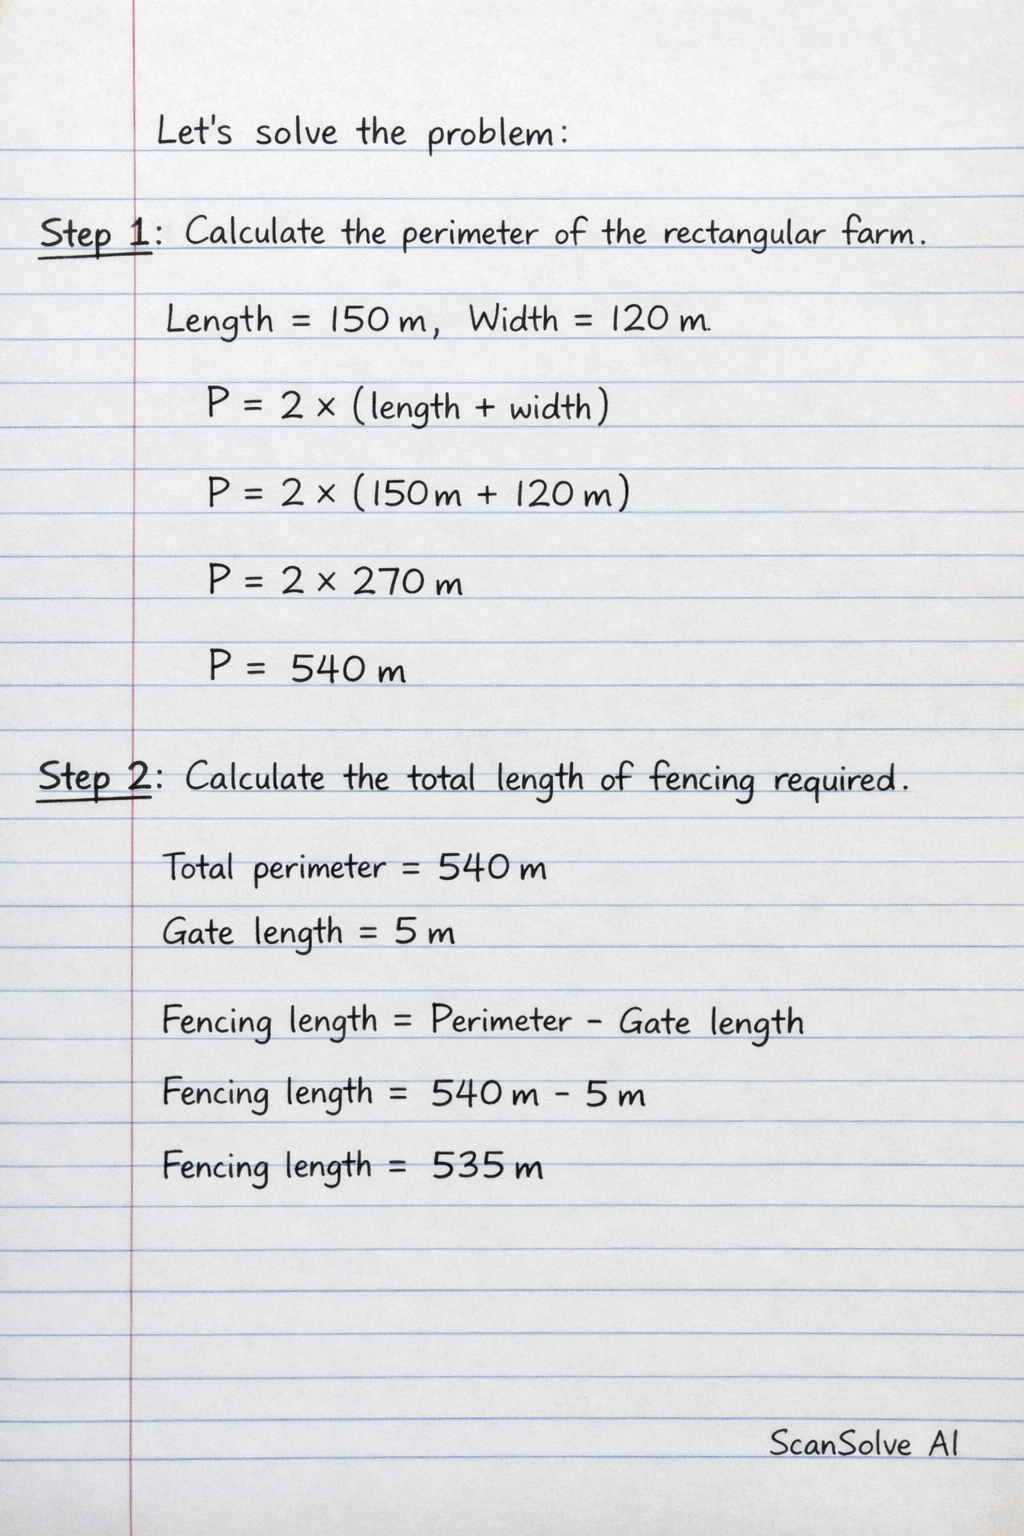 Let's solve the problem:
Step 1: Calculate the perimeter of the rectangular farm.
Length = 150 m, Width = 120 m.
P = 2 × (length + width)
P = 2 × (150 m + 120 m)
P = 2 × 270 m
P = 540 m
Step 2: Calculate the total length of fencing required.
Total perimeter = 540 m
Gate length = 5 m
Fencing length = Perimeter - Gate length
Fencing length = 540 m - 5 m
Fencing length = 535 m
ScanSolve AI